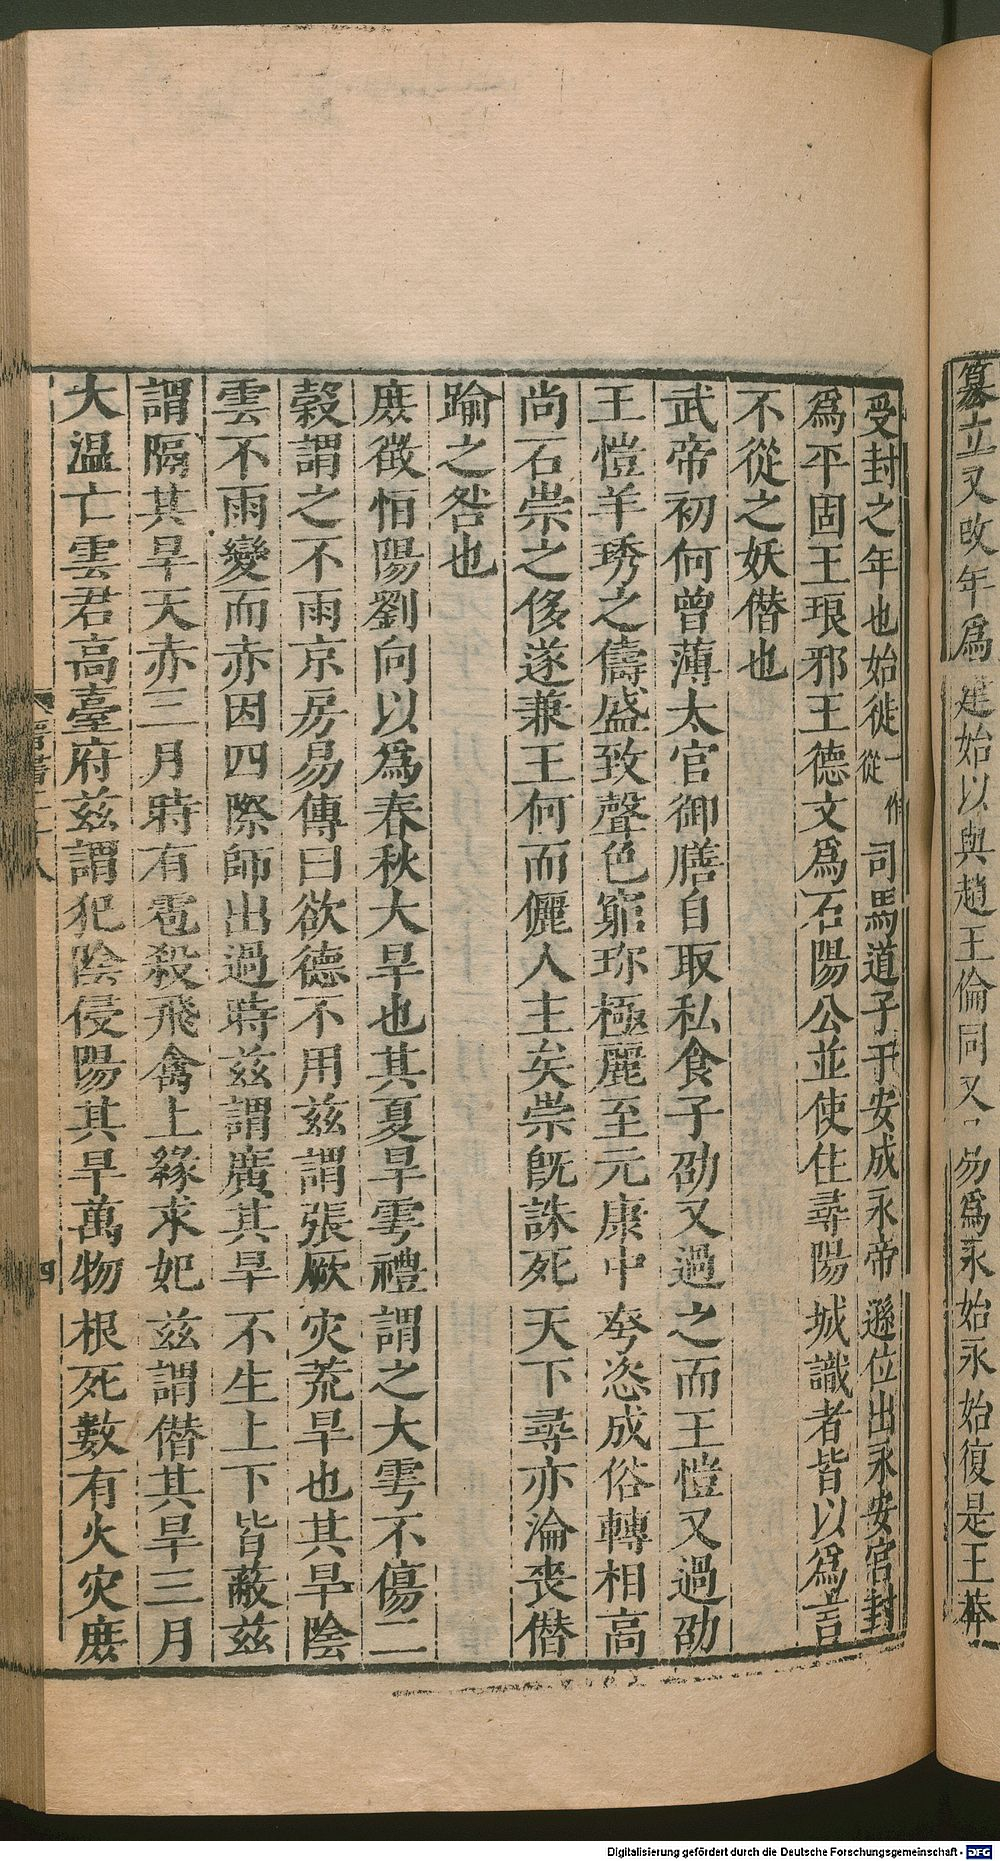 篡立又改年爲建始以與趙王倫同又易爲永始永始復是王莽
受封之年也始徙一作從司馬道子于安成永帝遜位出永安宮封
爲平固王琅邪王德文爲石陽公並使住尋陽城識者皆以爲言
不從之妖僣也
武帝初何曾薄太官御膳自取私食子劭又過之而王愷又過劭
王愷羊琇之儔盛致聲色窮珍極麗至元康中夸恣成俗轉相高
尚石崇之侈遂兼王何而儷人主矣崇旣誅死天下尋亦淪喪僣
踰之咎也
庶徵恒陽劉向以爲春秋大旱也其夏旱雩禮謂之大雩不傷二
穀謂之不雨京房易傳曰欲德不用茲謂張厥灾荒旱也其旱陰
雲不雨變而赤因四際師出過時茲謂廣其旱不生上下皆蔽茲
謂隔其旱天赤三月時有雹殺飛禽上緣求妃茲謂僣其旱三月
大温亡雲君高臺府茲謂犯陰侵陽其旱萬物根死數有火灾庶
四
Digitalisierung gefördert durch die Deutsche Forschungsgemeinschaft - DFG